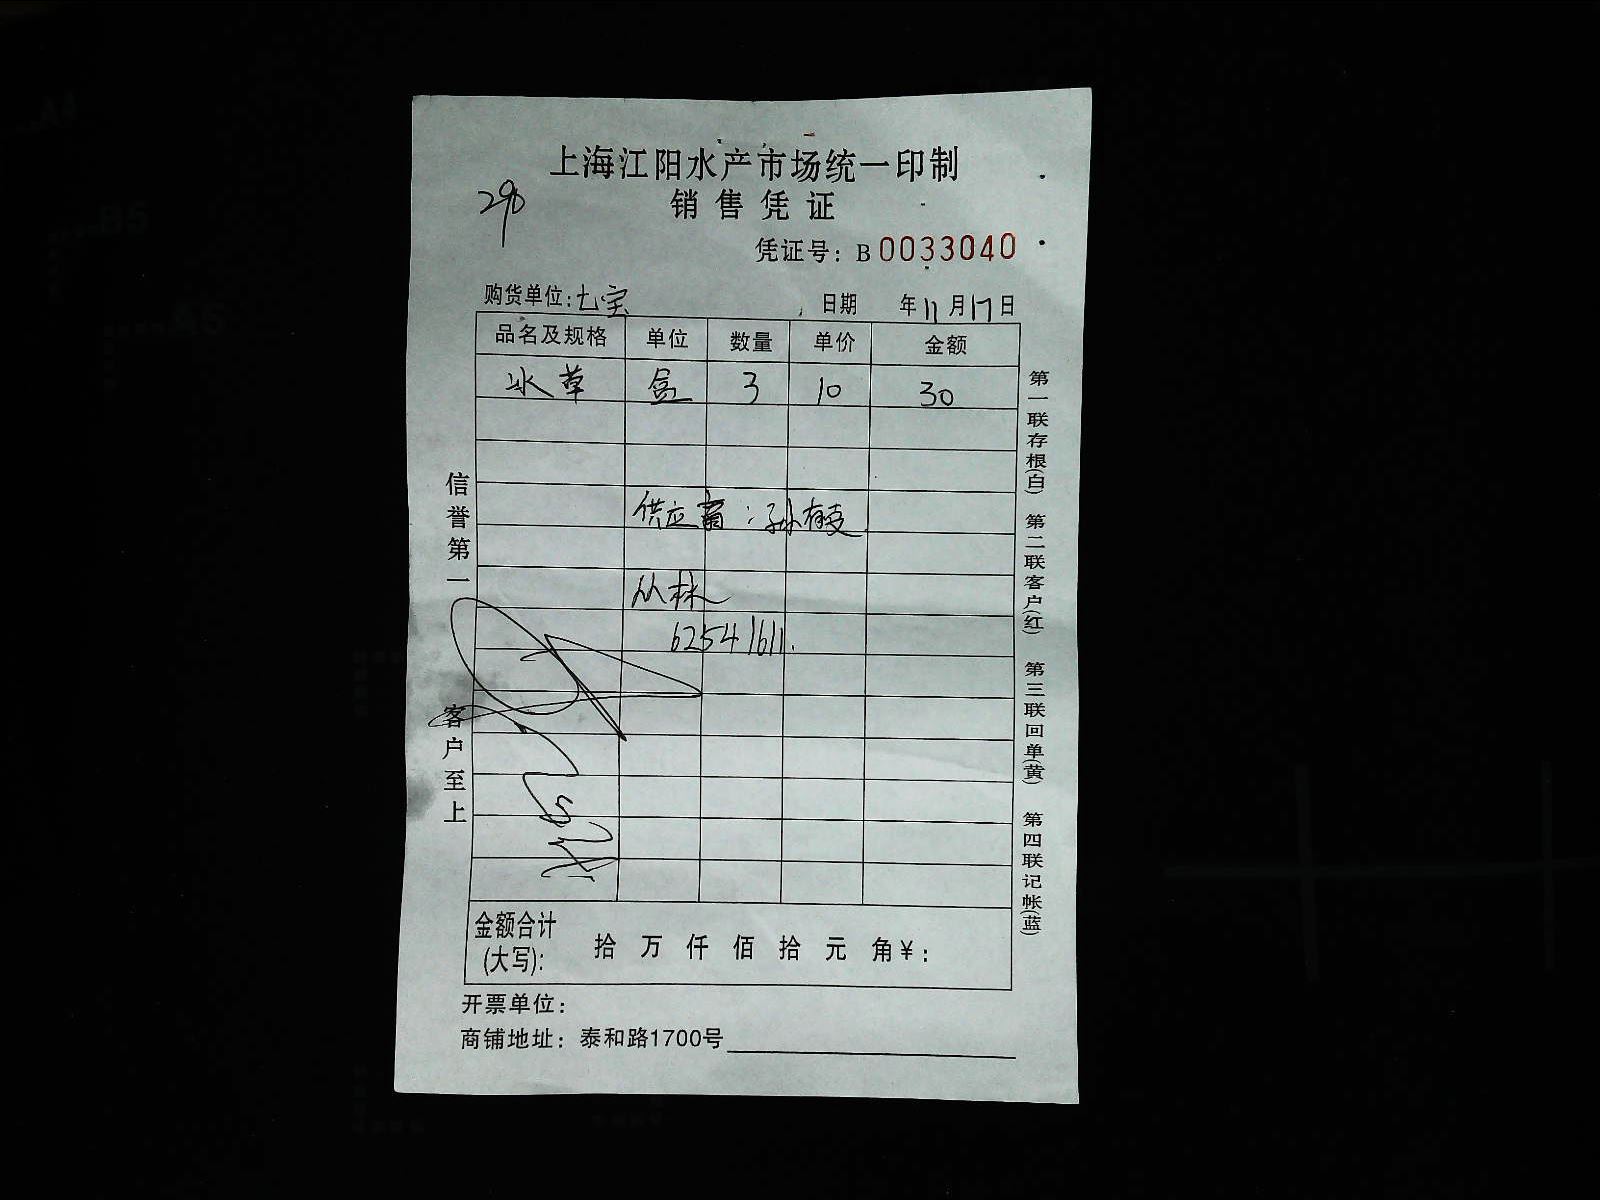 上海江阳水产市场统一印制
290
销售凭证
凭证号：B 0033040
购货单位：七宝 日期 年 11 月 17 日
品名及规格 单位 数量 单价 金额
冰草 盒 3 10 30
供应商：孙有
丛林
62541611.
金额合计(大写)： 拾 万 仟 佰 拾 元 角 ¥：
开票单位：
商铺地址：泰和路1700号
信誉第一 客户至上
第一联存根(白) 第二联客户(红) 第三联回单(黄) 第四联记帐(蓝)